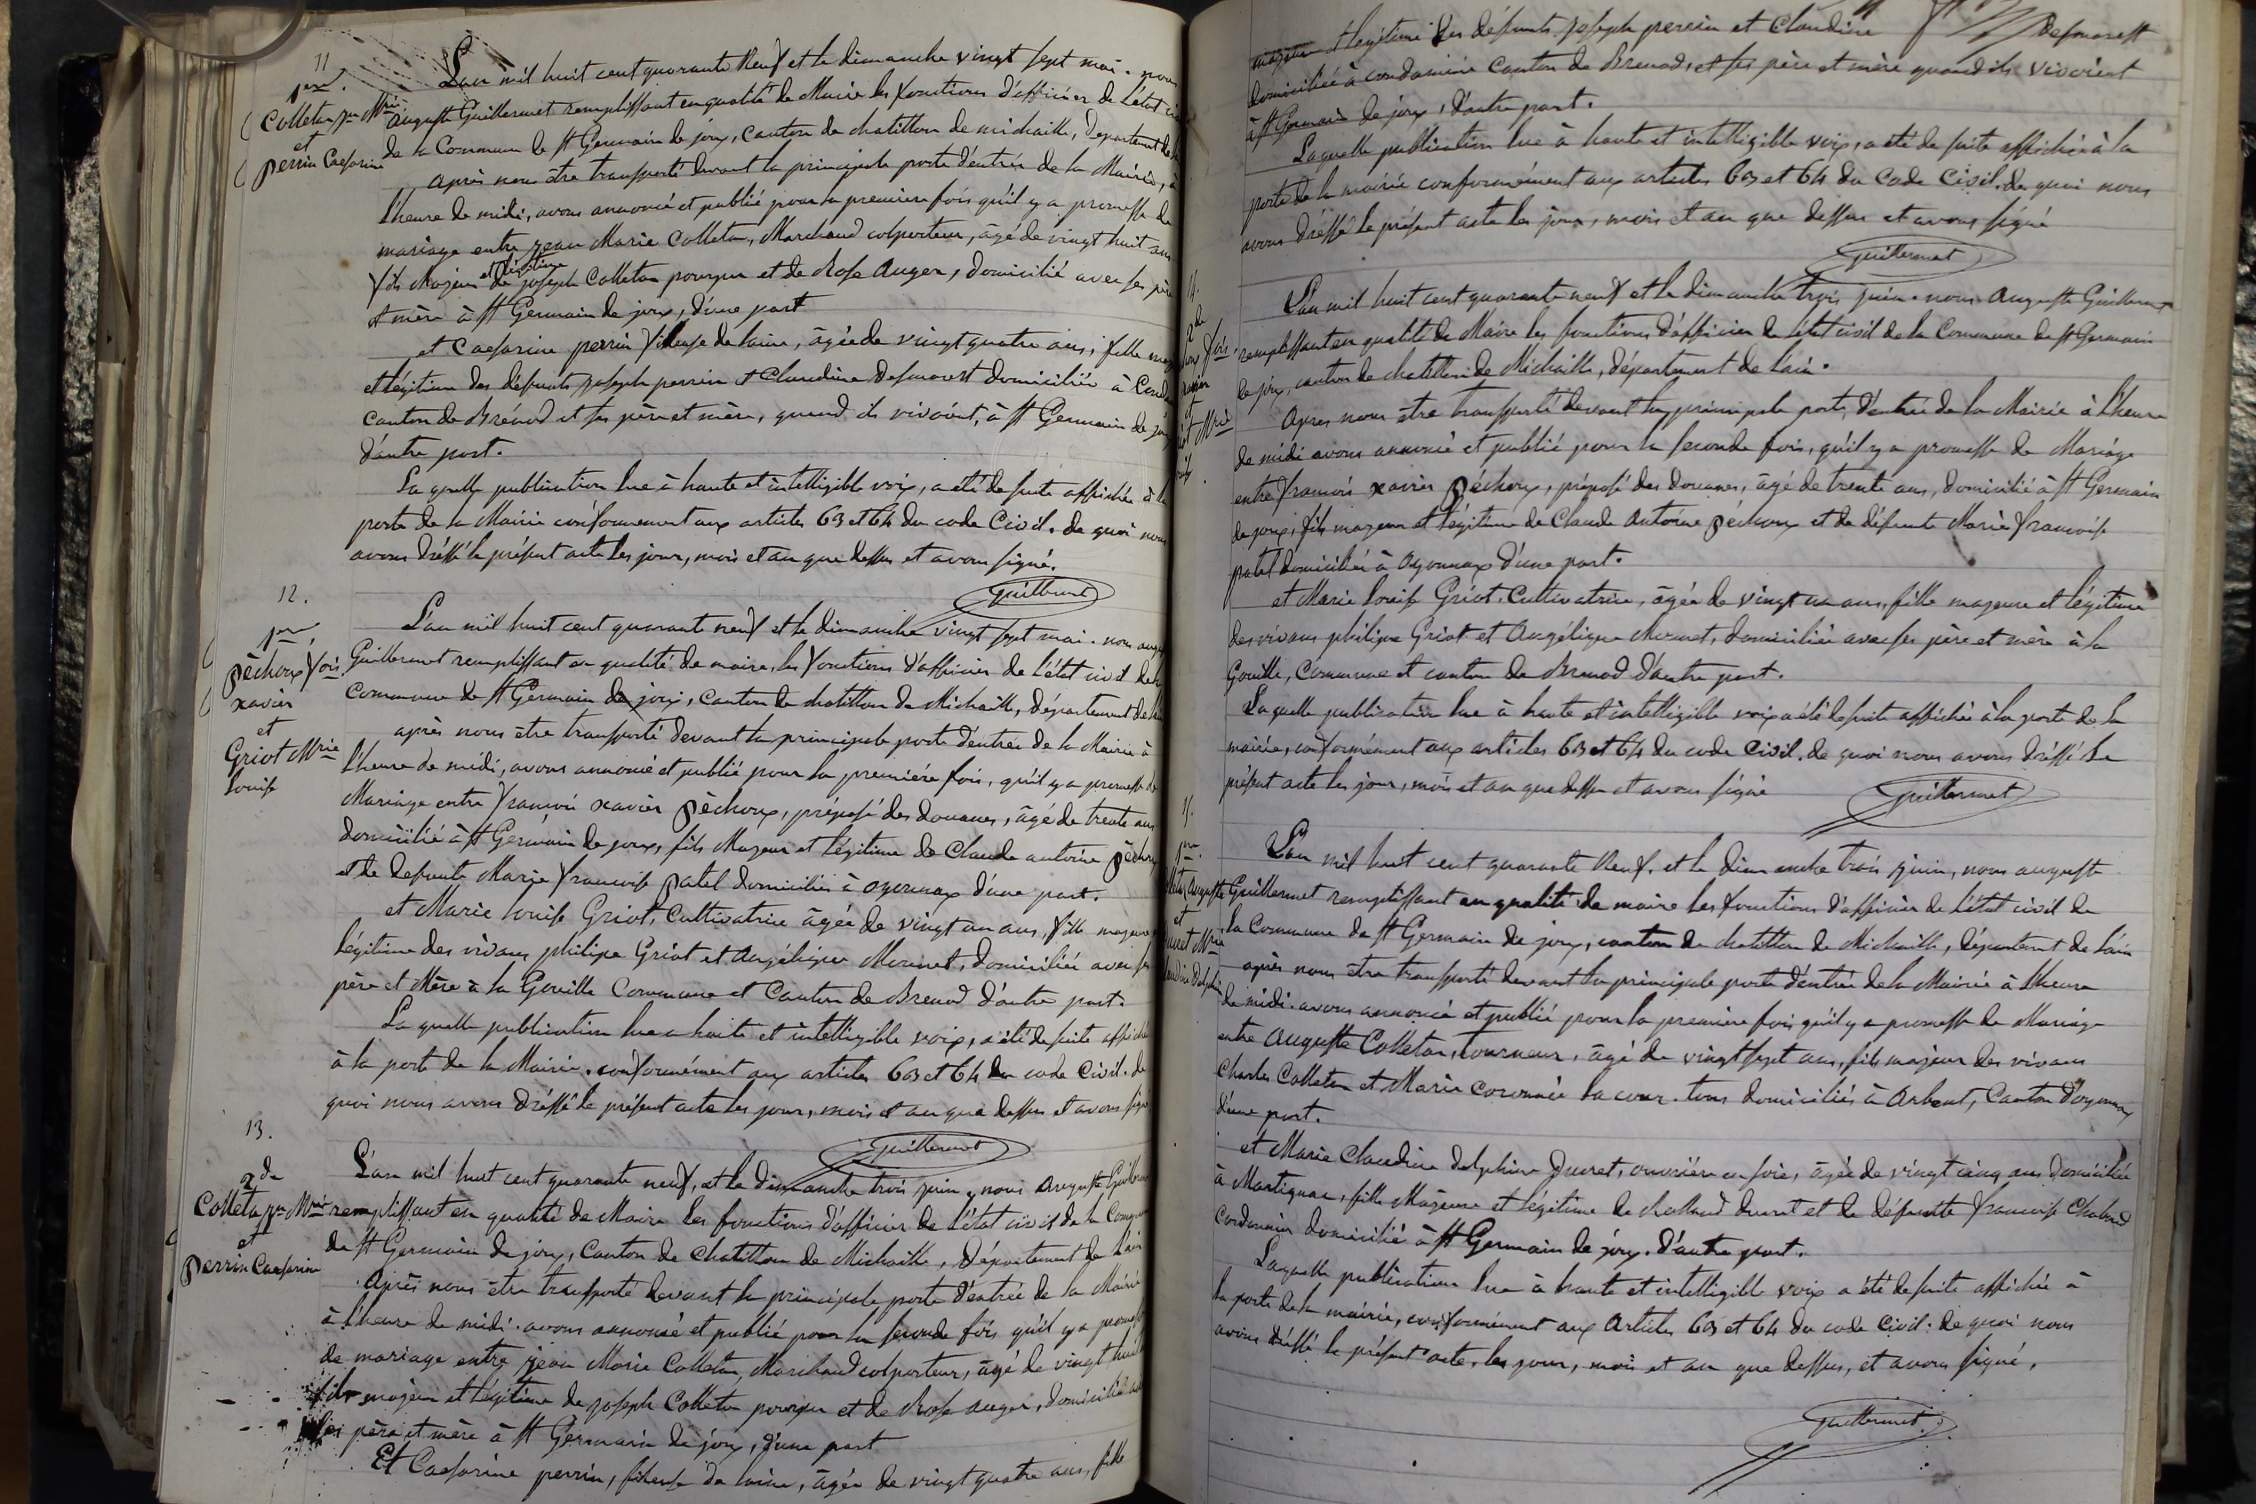 11
1re.
Colleton jn Mrie
et
perrin Caesarine
L'an mil huit cent quarante neuf et le dimanche vingt sept mai. nous
auguste Guillermet remplissant en qualité de Maire les fonctions d'officier de l'état
de la Commune de St Germain de joux, canton de chatillon de michaille, département de
après nous être transporté devant la principale porte d'entrée de la Mairie, à
l'heure de midi, avons annoncé et publié pour la première fois qu'il y a promesse de
mariage entre jean Marie Colleton, Marchand colporteur, âgé de vingt huit ans
fils Majeur et légitime de joseph Colleton et de Rose Auger, domicilié avec ses père
et mère à St Germain de joux, d'une part
et Caesarine perrin fileuse de laine, âgée de vingt quatre ans, fille
et légitime des défunts joseph perrin et Claudine domiciliée à
Canton de Brénod et ses père et mère, quand ils vivoient, à St Germain de
d'autre part.
La quelle publication lue à haute et intelligible voix, a été de suite affichée à la
porte de la Mairie conformément aux articles 63 et 64 du code Civil. de quoi nous
avons dréssé le présent acte les jour, mois et an que dessus et avons signé.
Guillermet
12.
1re
Péchoux fois
xavier
et
Griot Mrie
Louise
L'an mil huit cent quarante neuf et le dimanche vingt sept mai. nous
Guillermet remplissant en qualité de maire, les fonctions d'officier de l'état civil de la
Commune de St Germain de joux, canton de chatillon de Michaille, département de
après nous être transporté devant la principale porte d'entrée de la Mairie à
l'heure de midi, avons annoncé et publié pour la première fois, qu'il y a promesse de
Mariage entre françois xavier Péchoux, préposé des douanes, âgé de trente ans
domicilié à St Germain de joux, fils Majeur et légitime de Claude antoine
et de defunte Marie françoise patel domiciliés à oyonnax d'une part.
et Marie Louise Griot, Cultivatrice âgée de vingt un ans, fille majeure
légitime des vivans philipe Griot et Angélique Mermet, domiciliée avec ses
père et Mère à la Gouille Commune et Canton de Brenod d'autre part.
La quelle publication lue a haute et intelligible voix, a été de suite affichée
à la porte de la Mairie. conformément aux articles 63 et 64 du code Civil. de
quoi nous avons dréssé le présent acte les jour, mois et an que dessus et avons signé
Guillermet
13.
2de
Colleton jn Mrie
et
Perrin Caesarine
L'an mil huit cent quarante neuf, et le dimanche trois juin, nous Auguste
remplissant en qualité de Maire les fonctions d'officier de l'état civil de la
de St Germain de joux, Canton de Chatillon de Michaille, Département de l'ain
Après nous être transporté devant la principale porte d'entrée de la Mairie
à l'heure de midi. avons annoncé et publié pour la seconde fois qu'il y a
de mariage entre jean Marie Colleton, Marchand colporteur, âgé de vingt huit
fils majeur et légitime de joseph Colleton et de Rose auger, domicilié
ses père et mère à St Germain de joux, d'une part
Et Caesarine perrin, fileuse de laine, âgée de vingt quatre ans, fille
et légitime des défunts joseph perrin et Claudine
domiciliée à condamine Canton de Brenod, et ses père et mère quand ils vivoient
à St Germain de joux, d'autre part.
Laquelle publication lue à haute et intelligible voix, a été de suite affichée à la
porte de la mairie conformément aux articles 63 et 64 du Code Civil. de quoi nous
avons dréssé le présent acte les jour, mois et an que dessus et avons signé
Guillermet
14.
2de
L'an mil huit cent quarante neuf et le dimanche trois juin. nous Auguste Guillermet
remplissant en qualité de Maire les fonctions d'officier de l'état civil de la Commune de St Germain
de joux, canton de chatillon de Michaille, département de l'ain.
Après nous être transporté devant la principale porte d'entrée de la Mairie à l'heure
de midi avons annoncé et publié pour la seconde fois, qu'il y a promesse de Mariage
entre françois xavier Péchoux, préposé des douanes, âgé de trente ans, domicilié à St Germain
de joux, fils majeur et légitime de Claude Antoine Péchoux et de défunte Marie françoise
patel domicilié à Oyonnax d'une part.
et Marie Louise Griot, Cultivatrice, âgée de vingt un ans, fille majeure et légitime
des vivans philipe Griot et Angélique Mermet, domiciliée avec ses père et mère à la
Gouille, Commune et canton de Brenod d'autre part.
La quelle publication lue à haute et intelligible voix a été de suite affichée à la porte de la
mairie, conformément aux articles 63 et 64 du code Civil. de quoi nous avons dréssé le
présent acte les jour, mois et an que dessus et avons signé
Guillermet
15.
1re.
L'an mil huit cent quarante neuf, et le dimanche trois juin, nous auguste
Guillermet remplissant en qualité de maire les fonctions d'officier de l'état civil de
la Commune de St Germain de joux, canton de chatillon de Michaille, département de l'ain
après nous être transporté devant la principale porte d'entrée de la Mairie à l'heure
de midi. avons annoncé et publié pour la première fois qu'il y a promesse de Mariage
entre Auguste Colleton, tourneur, âgé de vingt sept ans, fils majeur des vivans
Charles Colleton et Marie la cour. tous domiciliés à Arbent, Canton d'oyonnax
d'une part.
et Marie Claudine delphine Ducret, ouvrière en soie, âgée de vingt cinq ans domiciliée
à Martignac, fille Majeure et légitime de ducret et de défunte françoise
Cordonnier domicilié à St Germain de joux. d'autre part.
Laquelle publication lue à haute et intelligible voix a été de suite affichée à
la porte de la mairie, conformément aux Articles 63 et 64 du code Civil. de quoi nous
avons dréssé le présent acte, les jour, mois et an que dessus, et avons signé.
Guillermet